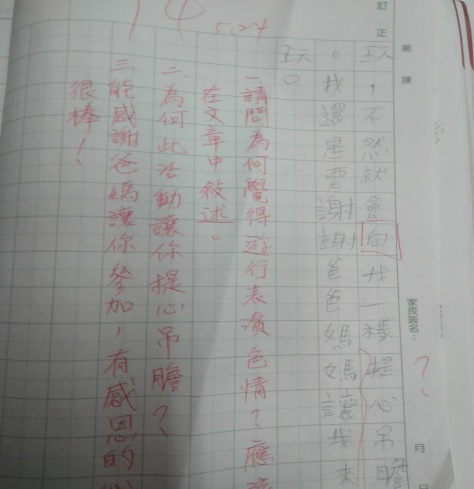 第 課
訂正
家長簽名：
月 日
?
玩，不然就會向我一樣提心吊膽
。我還是要謝謝爸爸媽媽讓我來
玩。
一、請問為何覺得遊行表演色情？應該
在文章中敘述。
二、為何此活動讓你提心吊膽？
三、能感謝爸媽讓你參加，有感恩的
很棒！
5.24